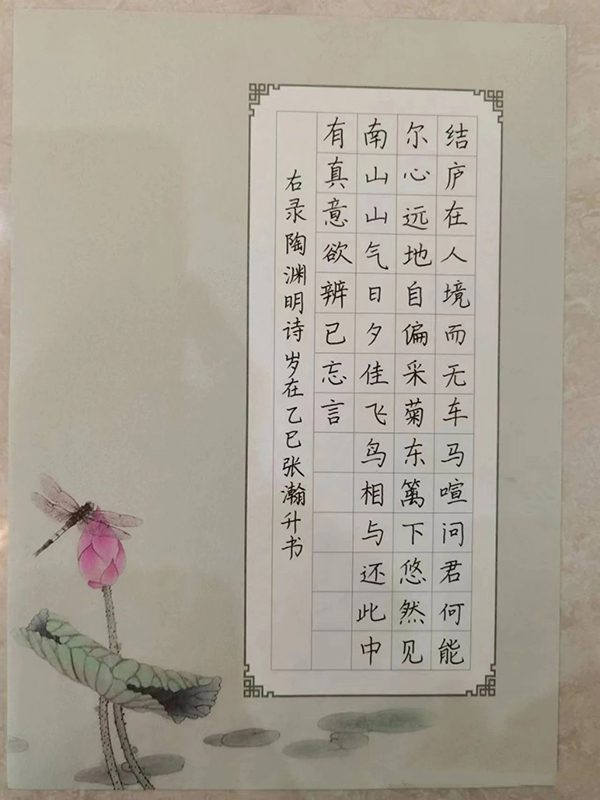 结庐在人境而无车马喧问君何能
尔心远地自偏采菊东篱下悠然见
南山山气日夕佳飞鸟相与还此中
有真意欲辨已忘言
右录陶渊明诗岁在乙巳张瀚升书